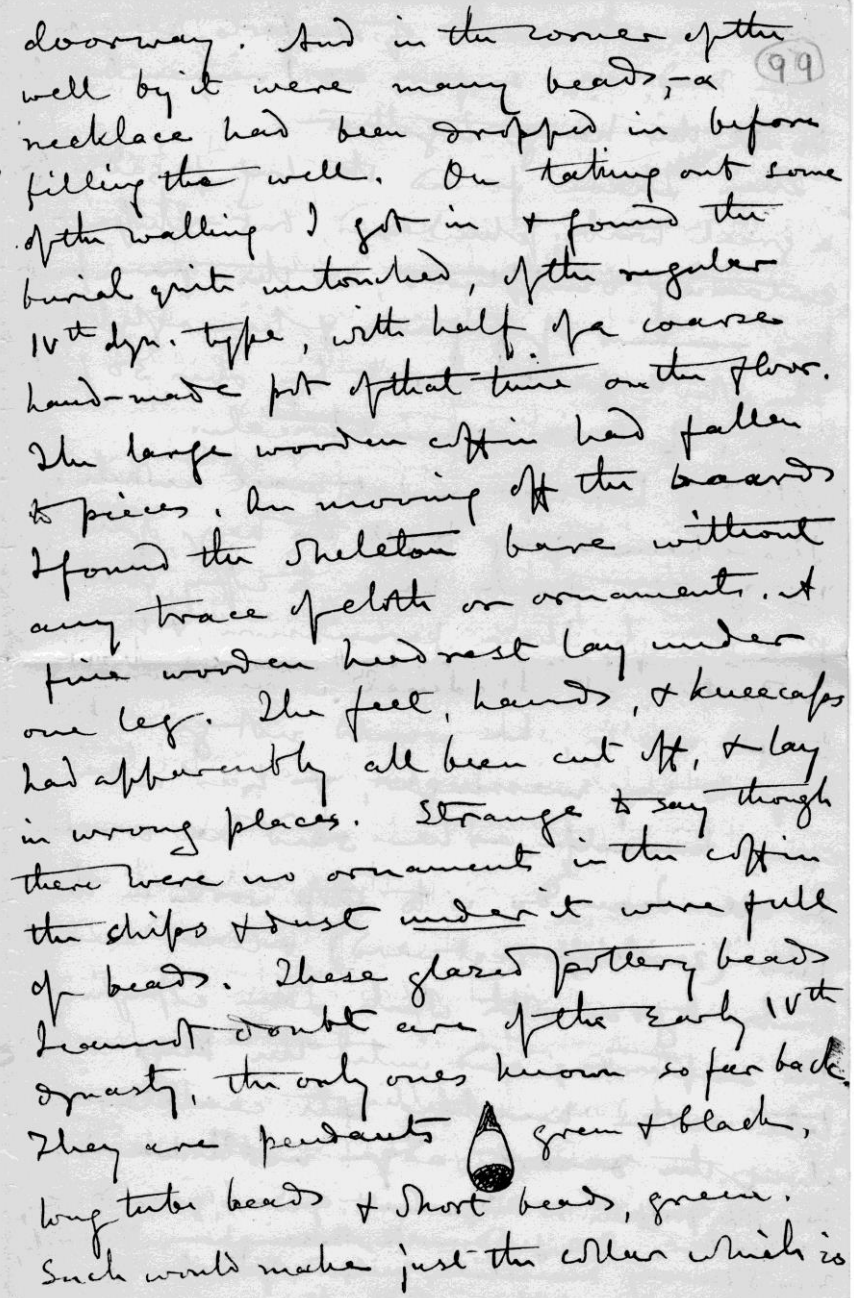 doorway. And in the corner of the
99
well by it were many beads, – a
necklace had been dropped in before
filling the well. On taking out some
of the walling I got in & found the
burial quite untouched, of the regular
IVth dyn. type, with half of a coarse
hand-made pot of that time on the floor.
The large wooden coffin had fallen
to pieces. On moving off the boards
I found the skeleton bare without
any trace of cloth or ornaments. A
fine wooden headrest lay under
one leg. The feet, hands, & kneecaps
had apparently all been cut off, & lay
in wrong places. Strange to say though
there were no ornaments in the coffin
the chips & dust under it were full
of beads. These glazed pottery beads
I cannot doubt are of the early IVth
dynasty, the only ones known so far back.
They are pendants green & black,
long tube beads & short beads, green.
Such would make just the collar which is